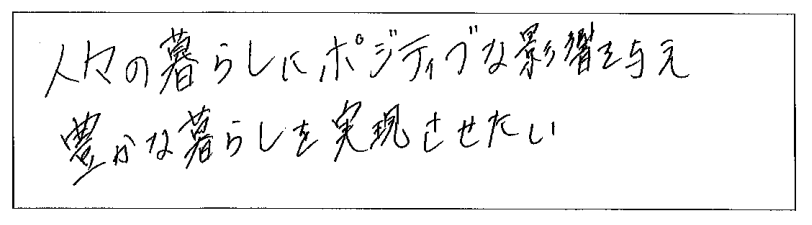 人々の暮らしにポジティブな影響を与え
豊かな暮らしを実現させたい